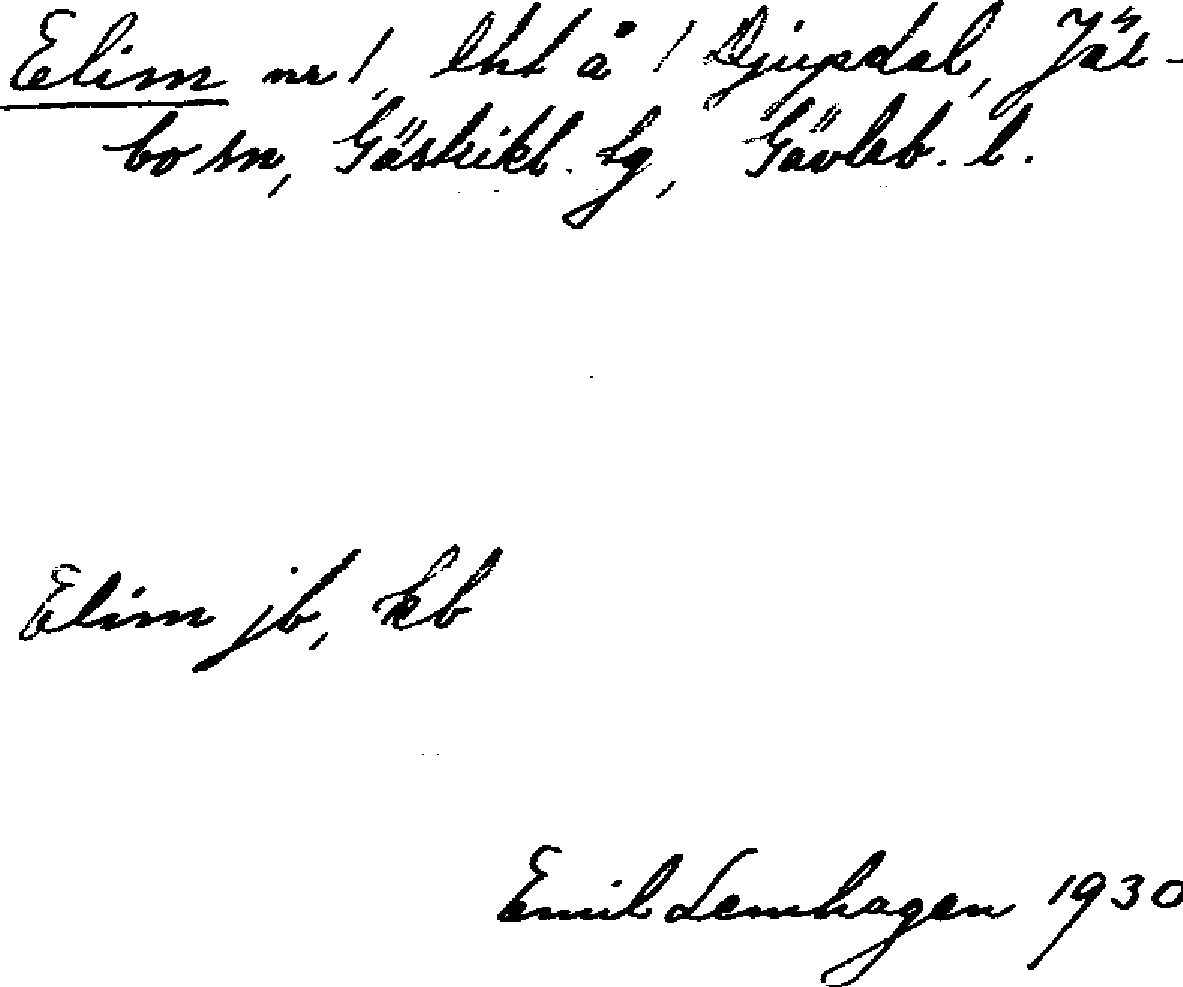 Elim nr 1, lht å 1 Djupdal, Jär-
bo sn, Gästrikl. tg, Gävleb. l.
Elim jb, kb
Emil Lemhagen 1930